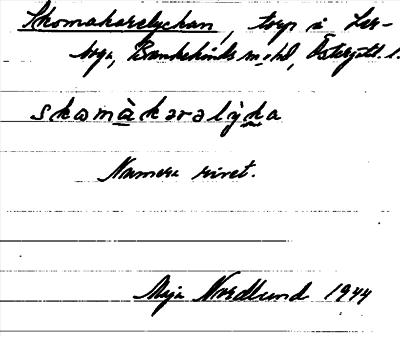 Skomakarelyckan, torp i Ler-
torga, Bankekinds m. ohd, Östergötl. l.
skomàkaralỳka
Numera rivet.
Maja Nordlund 1944